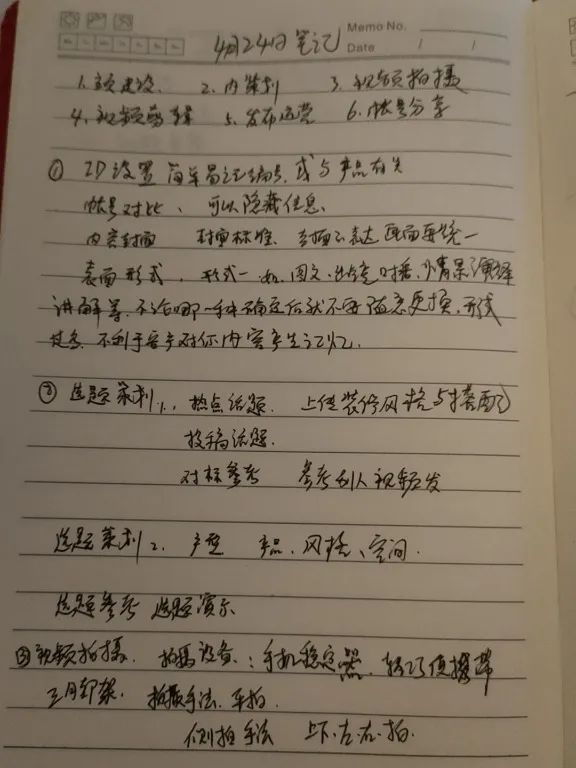 4月24日笔记
Memo No.
Date / /
1. 建设. 2. 内策划 3. 视频拍摄
4. 视频剪辑 5. 发布运营 6. 帐号分享
① ID设置 简单易记编号, 或与产品有关
帐号对比、可以隐藏信息、
内容封面 封面标准、封面 表达 画面要统一
表面形式, 形式一 如. 图文. 对话、情景演绎
讲解等. 不论哪一种确定后就不要随意更换, 形式
过多, 不利于客户对你内容产生记忆.
② 选题策划1., 热点话题. 上传装修风格与搭配
投稿话题.
对标参考 参考别人视频发
选题策划 2、 户型 产品、风格、空间.
选题参考 选题演示
③ 视频拍摄. 拍摄设备: 手机稳定器, 轻巧便携带
三脚架. 拍摄手法. 平拍.
侧拍手法 上下. 左. 右. 拍.